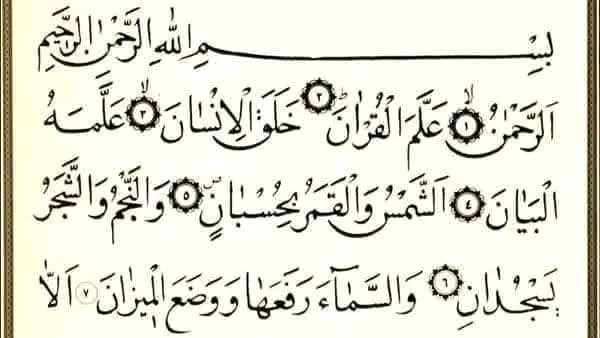 بِسْمِ اللهِ الرَّحْمٰنِ الرَّحِيمِ
اَلرَّحْمٰنُ ۙ ١ عَلَّمَ الْقُرْاٰنَ ۜ ٢ خَلَقَ الْاِنْسَانَ ۙ ٣ عَلَّمَهُ
الْبَيَانَ ٤ اَلشَّمْسُ وَالْقَمَرُ بِحُسْبَانٍ ۖ ٥ وَالنَّجْمُ وَالشَّجَرُ
يَسْجُدَانِ ٦ وَالسَّمَاءَ رَفَعَهَا وَوَضَعَ الْمِيزَانَ ٧ اَلَّا